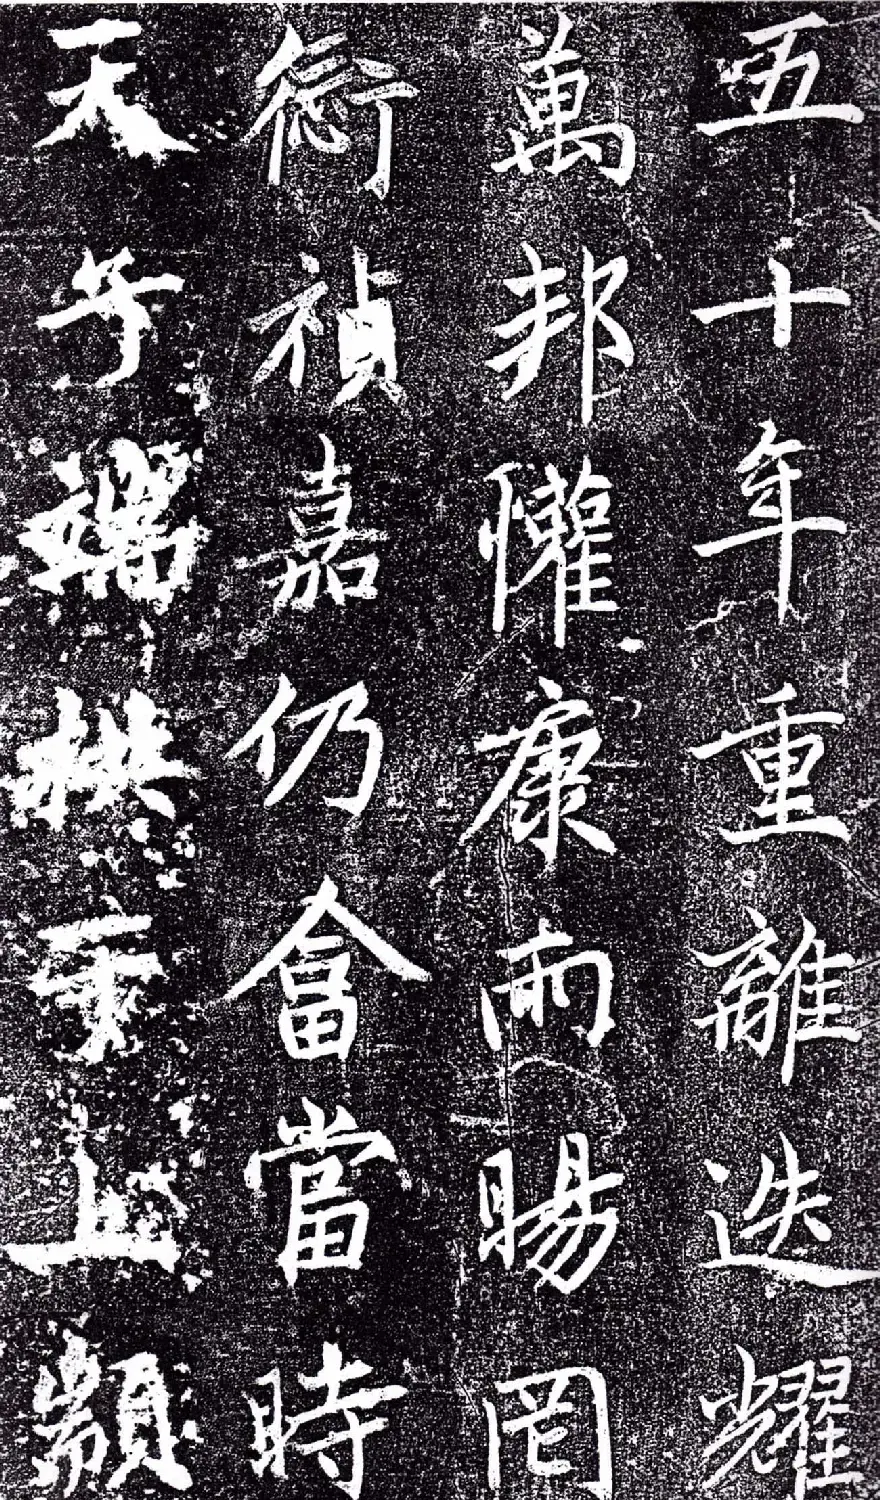 五十年重離迭耀
萬邦懽康雨暘罔
愆禎嘉仍畣當時
天子端拱上